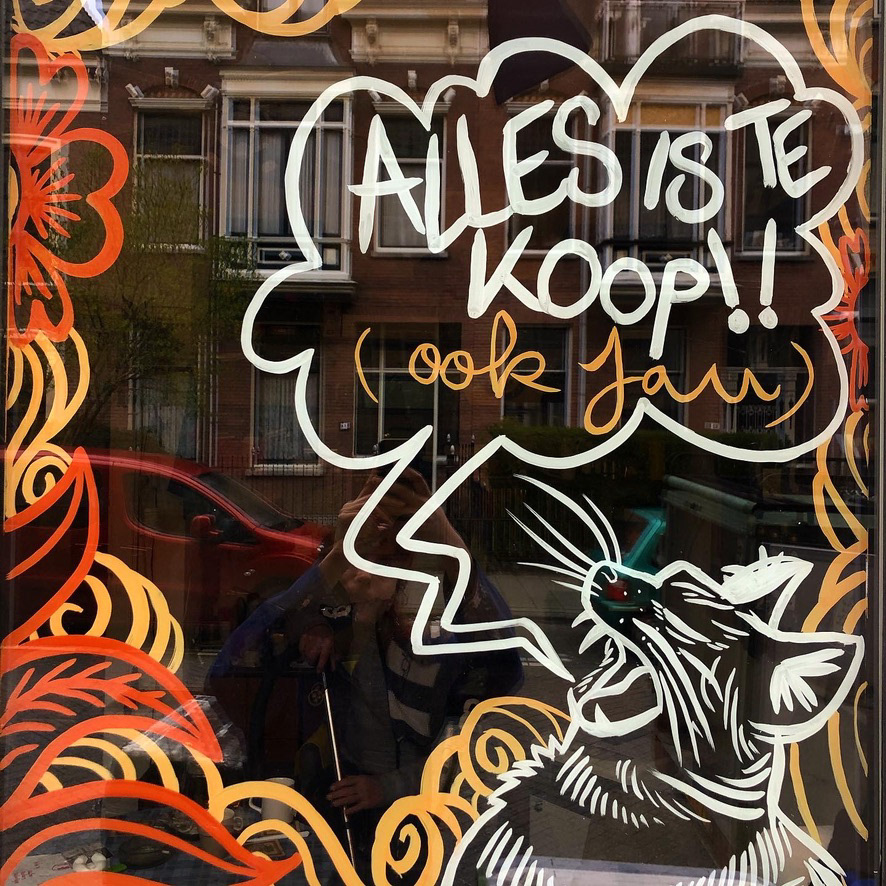 ALLES IS TE
KOOP!!
(ook Jau)